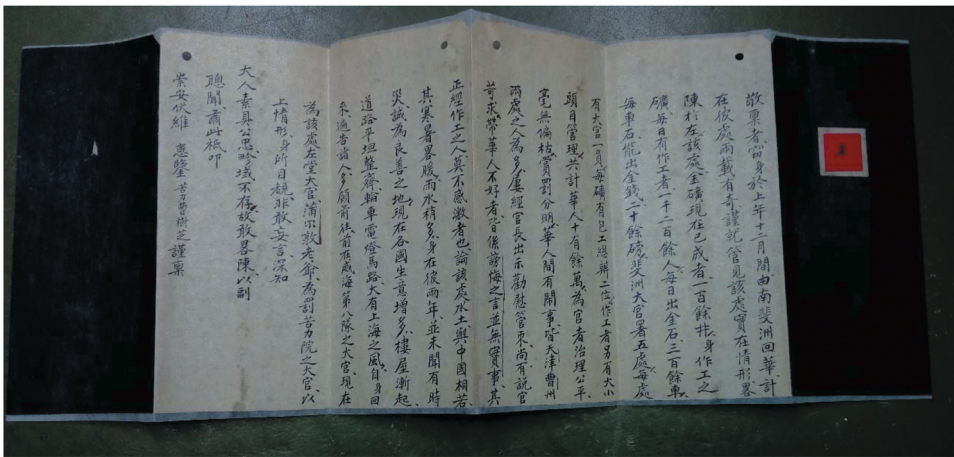 敬稟者、竊身於上年十二月間、由南斐洲回華、計
在彼處兩載有奇、謹就管見該處實在情形畧
陳於左、該處金礦現在已成者、一百餘拄、身作工之
礦每日有作工者一千二百餘人、每日出金石三百餘車、
每車石能出金錢二十餘磅、斐洲大官署五處、每處
有大官一員、每礦有包工總辦二位、作工者另有大小
頭目管理、共計華人十有餘萬、為官者治理公平、
毫無偏枯、賞罰分明、華人間有鬧事、皆天津曹州
兩處之人為多、屢經官長出示勸慰管束、尚有說官
苛求、帶華人不好者、皆係謗侮之言、並無實事、其
正經作工之人、莫不感激者也、論該處水土與中國相若、
其寒暑畧暖、而水稍多、身在彼兩年、並未聞有時
災、誠為良善之地、現在各國生意增多、樓屋漸起、
道路平坦整齊、輪車電燈馬路、大有上海之風、自身回
來、遍告諸人、多願前往、前在威海第八隊之大官、現在
為該處左堂大官、蒲尔敦老爺、為罰苦力院之大官、以
上情形、身所目覩、非敢妄言、深知
大人素具公忠、畛域不存、故敢畧陳、以副
聰聞、肅此祗叩
崇安、伏維 惠鑒 苦力曹樹芝謹稟